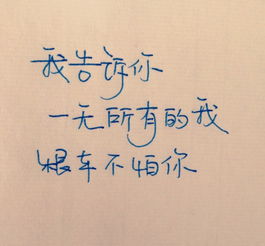 我告诉你
一无所有的我
根本不怕你